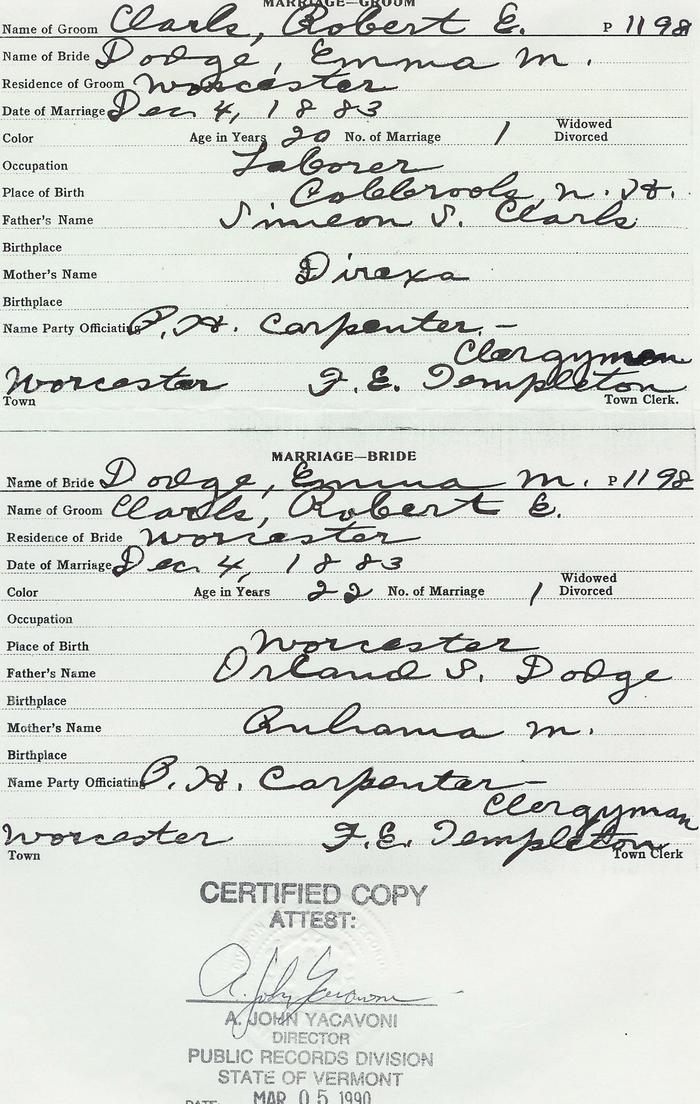 MARRIAGE—GROOM
Name of Groom Clark, Robert E. P 1198
Name of Bride Dodge, Emma M.
Residence of Groom Worcester
Date of Marriage Dec 4, 1883
Color Age in Years 20 No. of Marriage 1 Widowed Divorced
Occupation Laborer
Place of Birth Colebrook, N. H.
Father's Name Simeon S. Clark
Birthplace
Mother's Name Direxa
Birthplace
Name Party Officiating P. H. Carpenter. —
Clergyman
Worcester F. E. Templeton
Town Town Clerk.
MARRIAGE—BRIDE
Name of Bride Dodge, Emma M. P 1198
Name of Groom Clark, Robert E.
Residence of Bride Worcester
Date of Marriage Dec 4, 1883
Color Age in Years 22 No. of Marriage 1 Widowed Divorced
Occupation
Place of Birth Worcester
Father's Name Orland S. Dodge
Birthplace
Mother's Name M.
Birthplace
Name Party Officiating P. H. Carpenter —
Clergyman
Worcester F. E. Templeton
Town Town Clerk
CERTIFIED COPY
ATTEST:
A. John Yacavoni
A. JOHN YACAVONI
DIRECTOR
PUBLIC RECORDS DIVISION
STATE OF VERMONT
DATE: MAR 05 1990